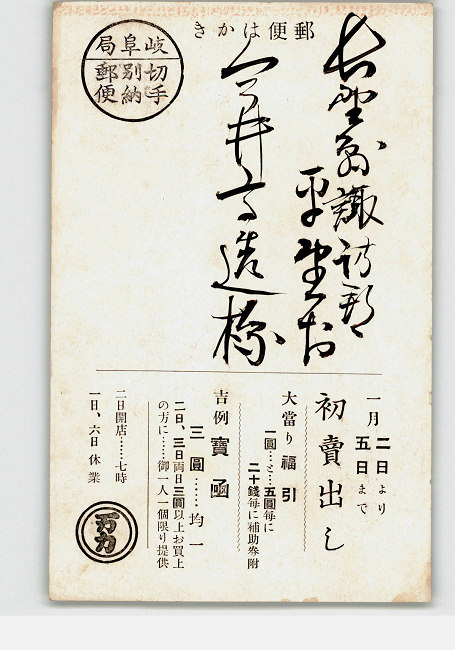 郵便はかき
岐阜局
切手別納
郵便
長野縣諏訪郡
平野村
今井高造様
一月二日より
五日まで
初賣出し
大當り福引
一圓…と…五圓毎に
二十錢毎に補助券附
吉例寶函
三圓……均一
二日、三日両日三圓以上お買上
の方に……御一人一個限り提供
二日開店……七時
一日、六日休業
万力